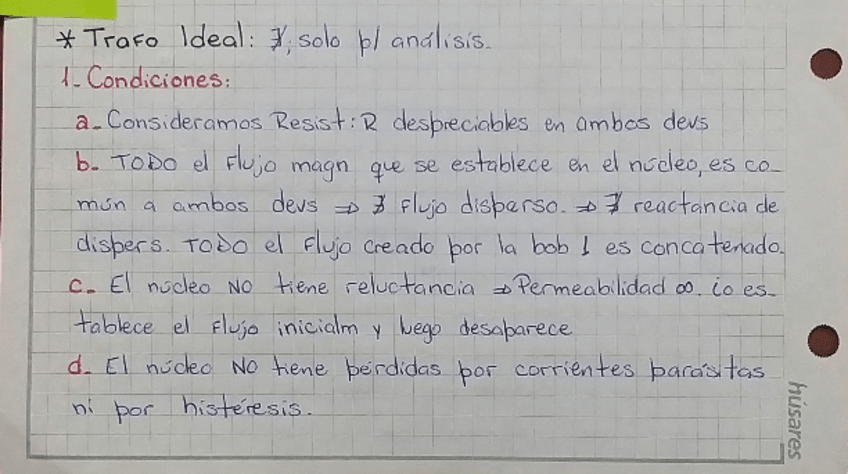 * Trafo Ideal: ∄, solo p/ análisis.
1- Condiciones:
a- Consideramos Resist: R despreciables en ambos devs
b- TODO el Flujo magn que se establece en el núcleo, es co-
mún a ambos devs ⇒ ∄ Flujo disperso. ⇒ ∄ reactancia de
dispers. TODO el Flujo creado por la bob 1 es concatenado.
c- El núcleo NO tiene reluctancia ⇒ Permeabilidad ∞. io es-
tablece el Flujo inicialm y luego desaparece
d- El núcleo NO tiene pérdidas por corrientes parásitas
ni por histéresis.
húsares